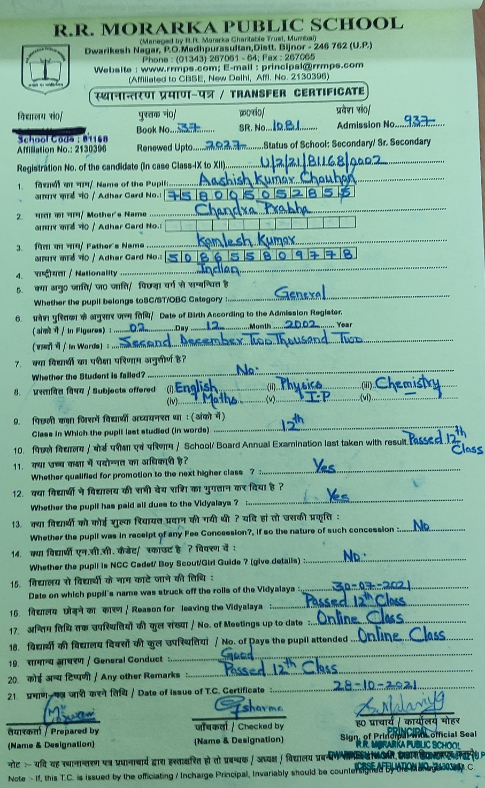 R.R. MORARKA PUBLIC SCHOOL
(Managed by R.R. Morarka Charitable Trust, Mumbai)
Dwarikesh Nagar, P.O.Medhpurasultan,Distt. Bijnor - 246 762 (U.P.)
Phone : (01343) 267061 - 64; Fax : 267065
Website : www.rrmps.com; E-mail : principal@rrmps.com
(Affiliated to CBSE, New Delhi, Affi. No. 2130396)
स्थानान्तरण प्रमाण-पत्र / TRANSFER CERTIFICATE
विद्यालय सं०/ पुस्तक सं०/ क्र०सं०/ प्रवेश सं०/
School Code : 81168 Book No. 37 SR. No. 1081 Admission No. 937
Affiliation No.: 2130396 Renewed Upto 2027 Status of School: Secondary/ Sr. Secondary
Registration No. of the candidate (in case Class-IX to XII) U/2/21/81168/0002
1. विद्यार्थी का नाम/ Name of the Pupil: Aashish Kumar Chauhan
आधार कार्ड नं०/ Adhar Card No.: 758005052855
2. माता का नाम/ Mother's Name Chandra Prabha
आधार कार्ड नं०/ Adhar Card No.:
3. पिता का नाम/ Father's Name Kamlesh Kumar
आधार कार्ड नं०/ Adhar Card No.: 508655809778
4. राष्ट्रीयता / Nationality Indian
5. क्या अनु० जाति/ ज० जाति/ पिछड़ा वर्ग से सम्बन्धित है
Whether the pupil belongs toSC/ST/OBC Category : General
6. प्रवेश पुस्तिका के अनुसार जन्म तिथि/ Date of Birth According to the Admission Register.
(अंकों में / In Figures) : 02 Day 12 Month 2002 Year
(शब्दों में / In Words) : Second December Two Thousand Two
7. क्या विद्यार्थी का परीक्षा परिणाम अनुत्तीर्ण है?
Whether the Student is failed? No.
8. प्रस्तावित विषय / Subjects offered (i) English (ii) Physics (iii) Chemistry
(iv) Maths. (v) I.P (vi)
9. पिछली कक्षा जिसमें विद्यार्थी अध्ययनरत था : (अंको में)
Class in Which the pupil last studied (in words) 12th
10. पिछले विद्यालय / बोर्ड परीक्षा एवं परिणाम / School/ Board Annual Examination last taken with result Passed 12th Class
11. क्या उच्च कक्षा में पदोन्नत का अधिकारी है?
Whether qualified for promotion to the next higher class ? : Yes
12. क्या विद्यार्थी ने विद्यालय की सभी देय राशि का भुगतान कर दिया है ?
Whether the pupil has paid all dues to the Vidyalaya ? : Yes
13. क्या विद्यार्थी को कोई शुल्क रियायत प्रदान की गयी थी ? यदि हां तो उसकी प्रकृति :
Whether the pupil was in receipt of any Fee Concession?, if so the nature of such concession : No
14. क्या विद्यार्थी एन.सी.सी. कैडेट/ स्काउट है ? विवरण दें :
Whether the pupil is NCC Cadet/ Boy Scout/Girl Guide ? (give details) : No.
15. विद्यालय से विद्यार्थी के नाम काटे जाने की तिथि :
Date on which pupil's name was struck off the rolls of the Vidyalaya : 30-07-2021
16. विद्यालय छोड़ने का कारण / Reason for leaving the Vidyalaya Passed 12th Class
17. अन्तिम तिथि तक उपस्थितियों की कुल संख्या / No. of Meetings up to date : Online Class
18. विद्यार्थी की विद्यालय दिवसों की कुल उपस्थितियां / No. of Days the pupil attended Online Class
19. सामान्य आचरण / General Conduct : Good
20. कोई अन्य टिप्पणी / Any other Remarks Passed 12th Class
21. प्रमाण-पत्र जारी करने तिथि / Date of Issue of T.C. Certificate 28-10-2021
तैयारकर्ता / Prepared by जाँचकर्ता / Checked by ह० प्राचार्य / कार्यालय मोहर
(Name & Designation) (Name & Designation) Sign. of Principal with official Seal
PRINCIPAL
R.R. MORARKA PUBLIC SCHOOL
Note :- If this, T.C. is issued by the officiating / Incharge Principal, Invariably should be countersigned by